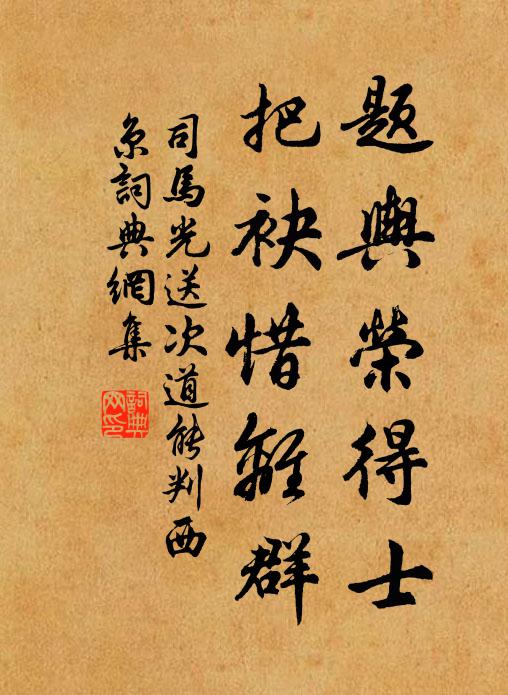 題輿榮得士
把袂惜離群
司馬光送次道能判西
京詞典網集
詞典網印